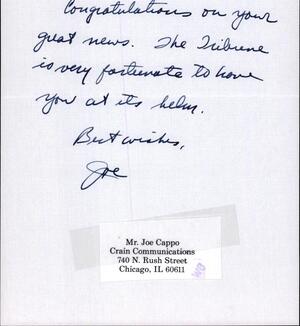 Congratulations on your
great news. The Tribune
is very fortunate to have
you at its helm.
Best wishes,
Joe
Mr. Joe Cappo
Crain Communications
740 N. Rush Street
Chicago, IL 60611